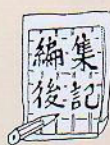 編集
後記